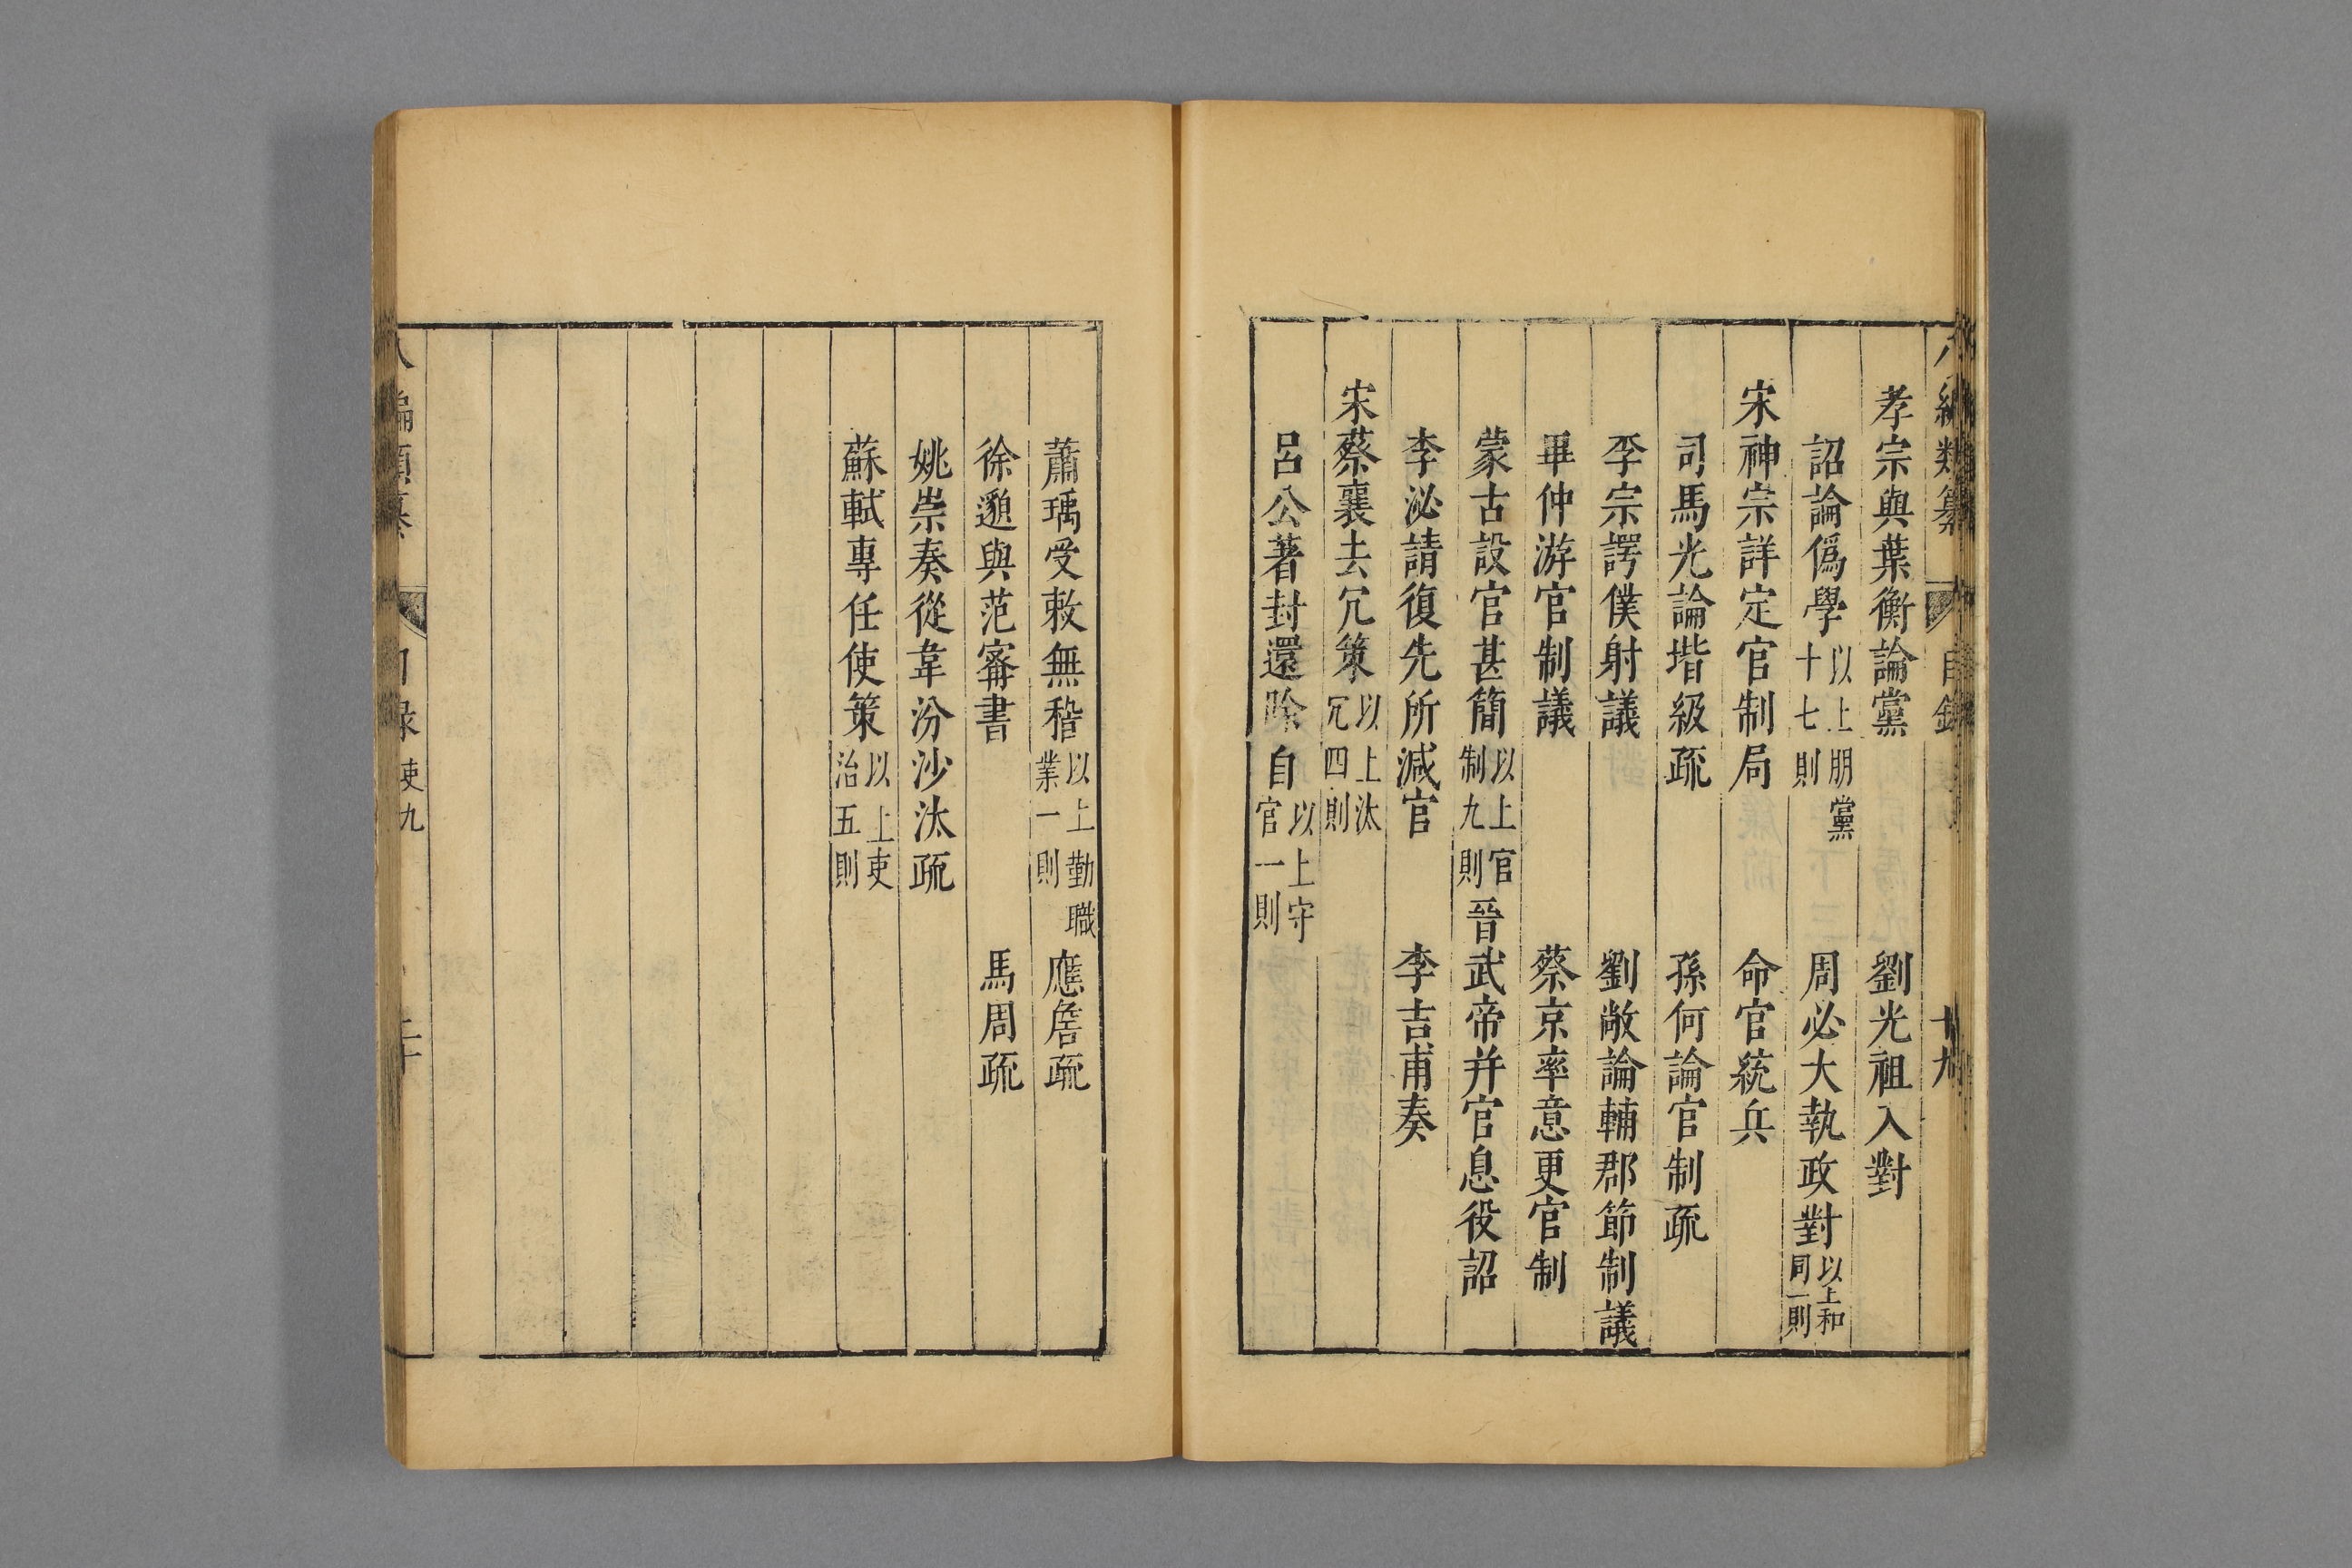 八編類纂 目錄 十九
孝宗與葉衡論黨 劉光祖入對
詔論僞學 以上朋黨十七則 周必大執政對 以上和同一則
宋神宗詳定官制局 命官統兵
司馬光論堦級疏 孫何論官制疏
李宗諤僕射議 劉敞論輔郡節制議
畢仲游官制議 蔡京率意更官制
蒙古設官甚簡 以上官制九則 晉武帝并官息役詔
李泌請復先所減官 李吉甫奏
宋蔡襄去冗策 以上汰冗四則
呂公著封還除自 以上守官一則
蕭瑀受敕無稽 以上勤職業一則 應詹疏
徐邈與范甯書 馬周疏
姚崇奏從韋汾沙汰疏
蘇軾專任使策 以上吏治五則
八編類纂 目錄 吏九